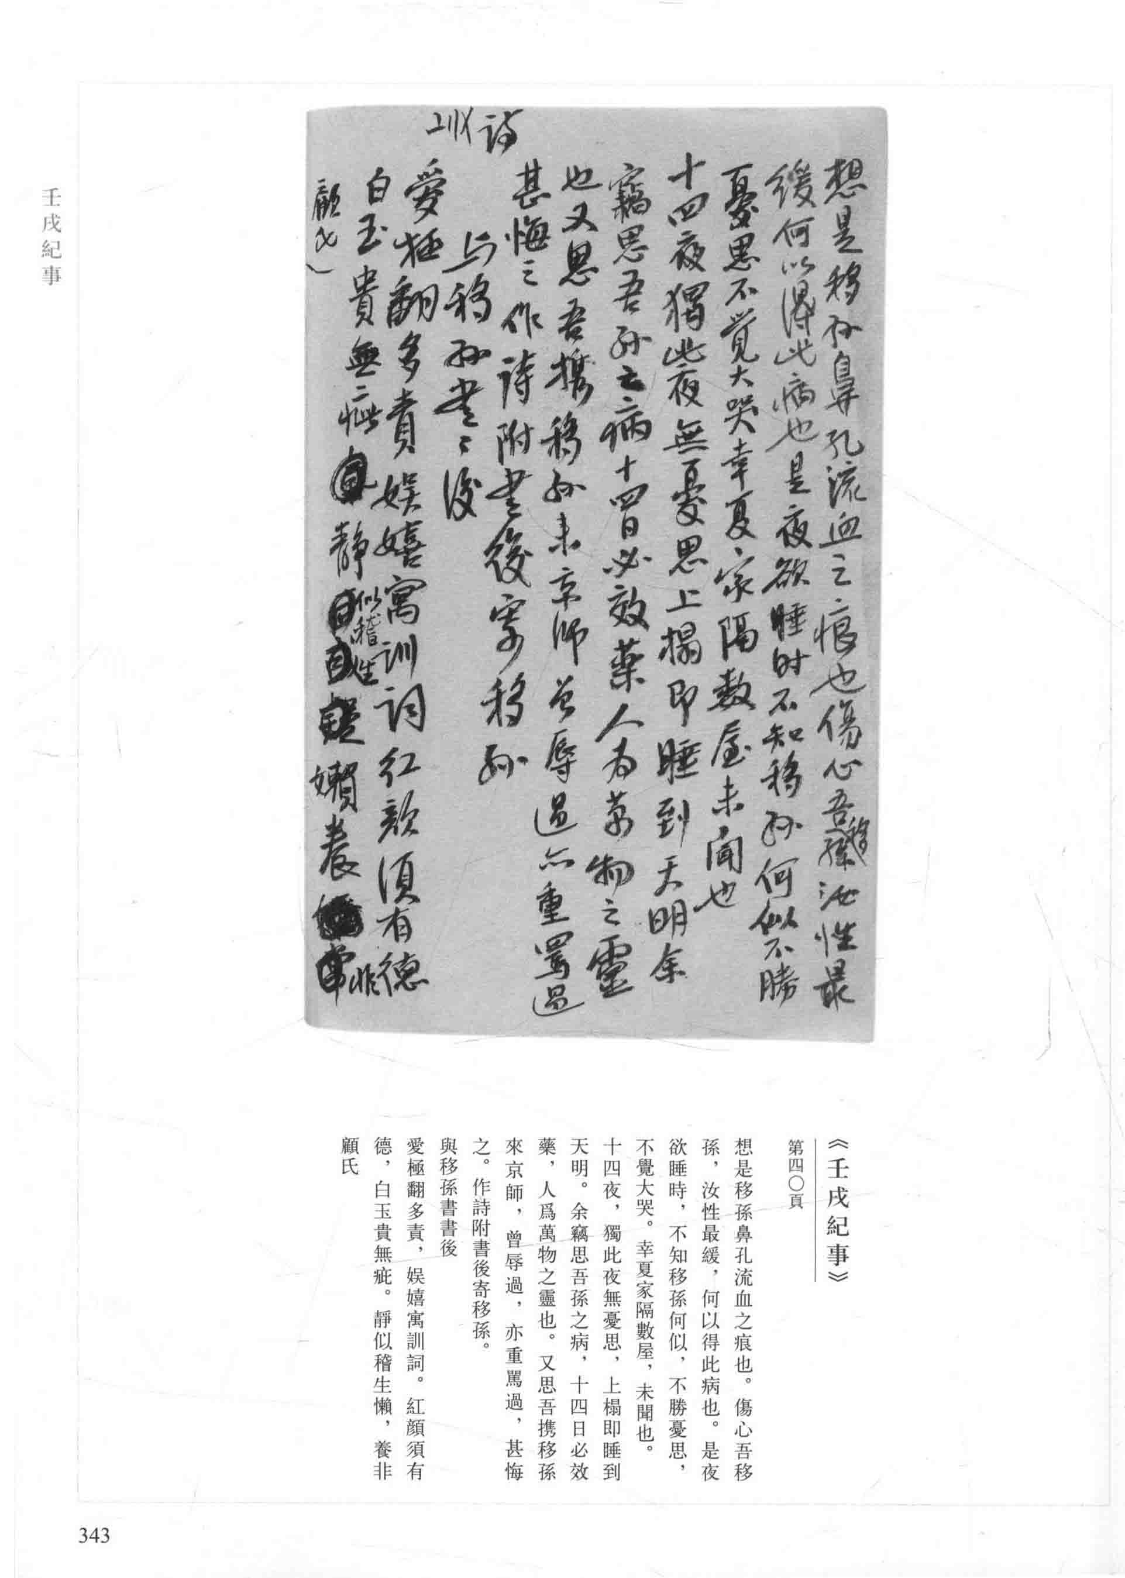 壬戌紀事
詩
訓
想是移孙鼻孔流血之痕也傷心吾移孫汝性最
緩何以得此病也是夜欲睡时不知移孙何似不勝
憂思不觉大哭幸夏家隔数屋未闻也
十四夜獨此夜無憂思上榻即睡到天明余
竊思吾孙之病十四日必效藥人为萬物之靈
也又思吾携移孙来京师曾辱過亦重罵過
甚悔之作詩附书後寄移孙
与移孙书书後
愛極翻多責娱嬉寓訓词红颜須有德
白玉貴無疵靜似嵇生嬾養非
顧氏
《壬戌紀事》
第四〇頁
想是移孫鼻孔流血之痕也。傷心吾移
孫，汝性最緩，何以得此病也。是夜
欲睡時，不知移孫何似，不勝憂思，
不覺大哭。幸夏家隔數屋，未聞也。
十四夜，獨此夜無憂思，上榻即睡到
天明。余竊思吾孫之病，十四日必效
藥，人爲萬物之靈也。又思吾携移孫
來京師，曾辱過，亦重罵過，甚悔
之。作詩附書後寄移孫。
與移孫書書後
愛極翻多責，娱嬉寓訓詞。紅顔須有
德，白玉貴無疵。靜似稽生懶，養非
顧氏
343